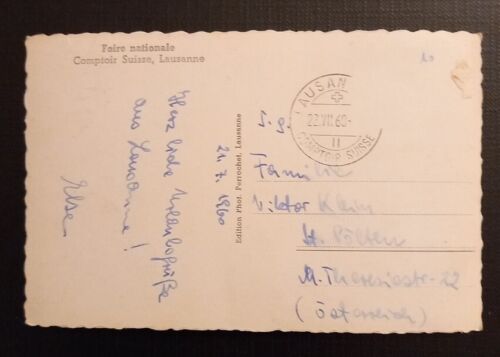 Foire nationale
Comptoir Suisse, Lausanne
Herzliche Urlaubsgrüße
aus Lausanne!
Elsa
21.7.1960
Edition Phot. Perrochet, Lausanne
10
LAUSAN
22.VII.60-
11
COMPTOIR SUISSE
S. g.
Familie
Viktor Klein
St. Pölten
M. Theresiastr. 22
(Österreich)